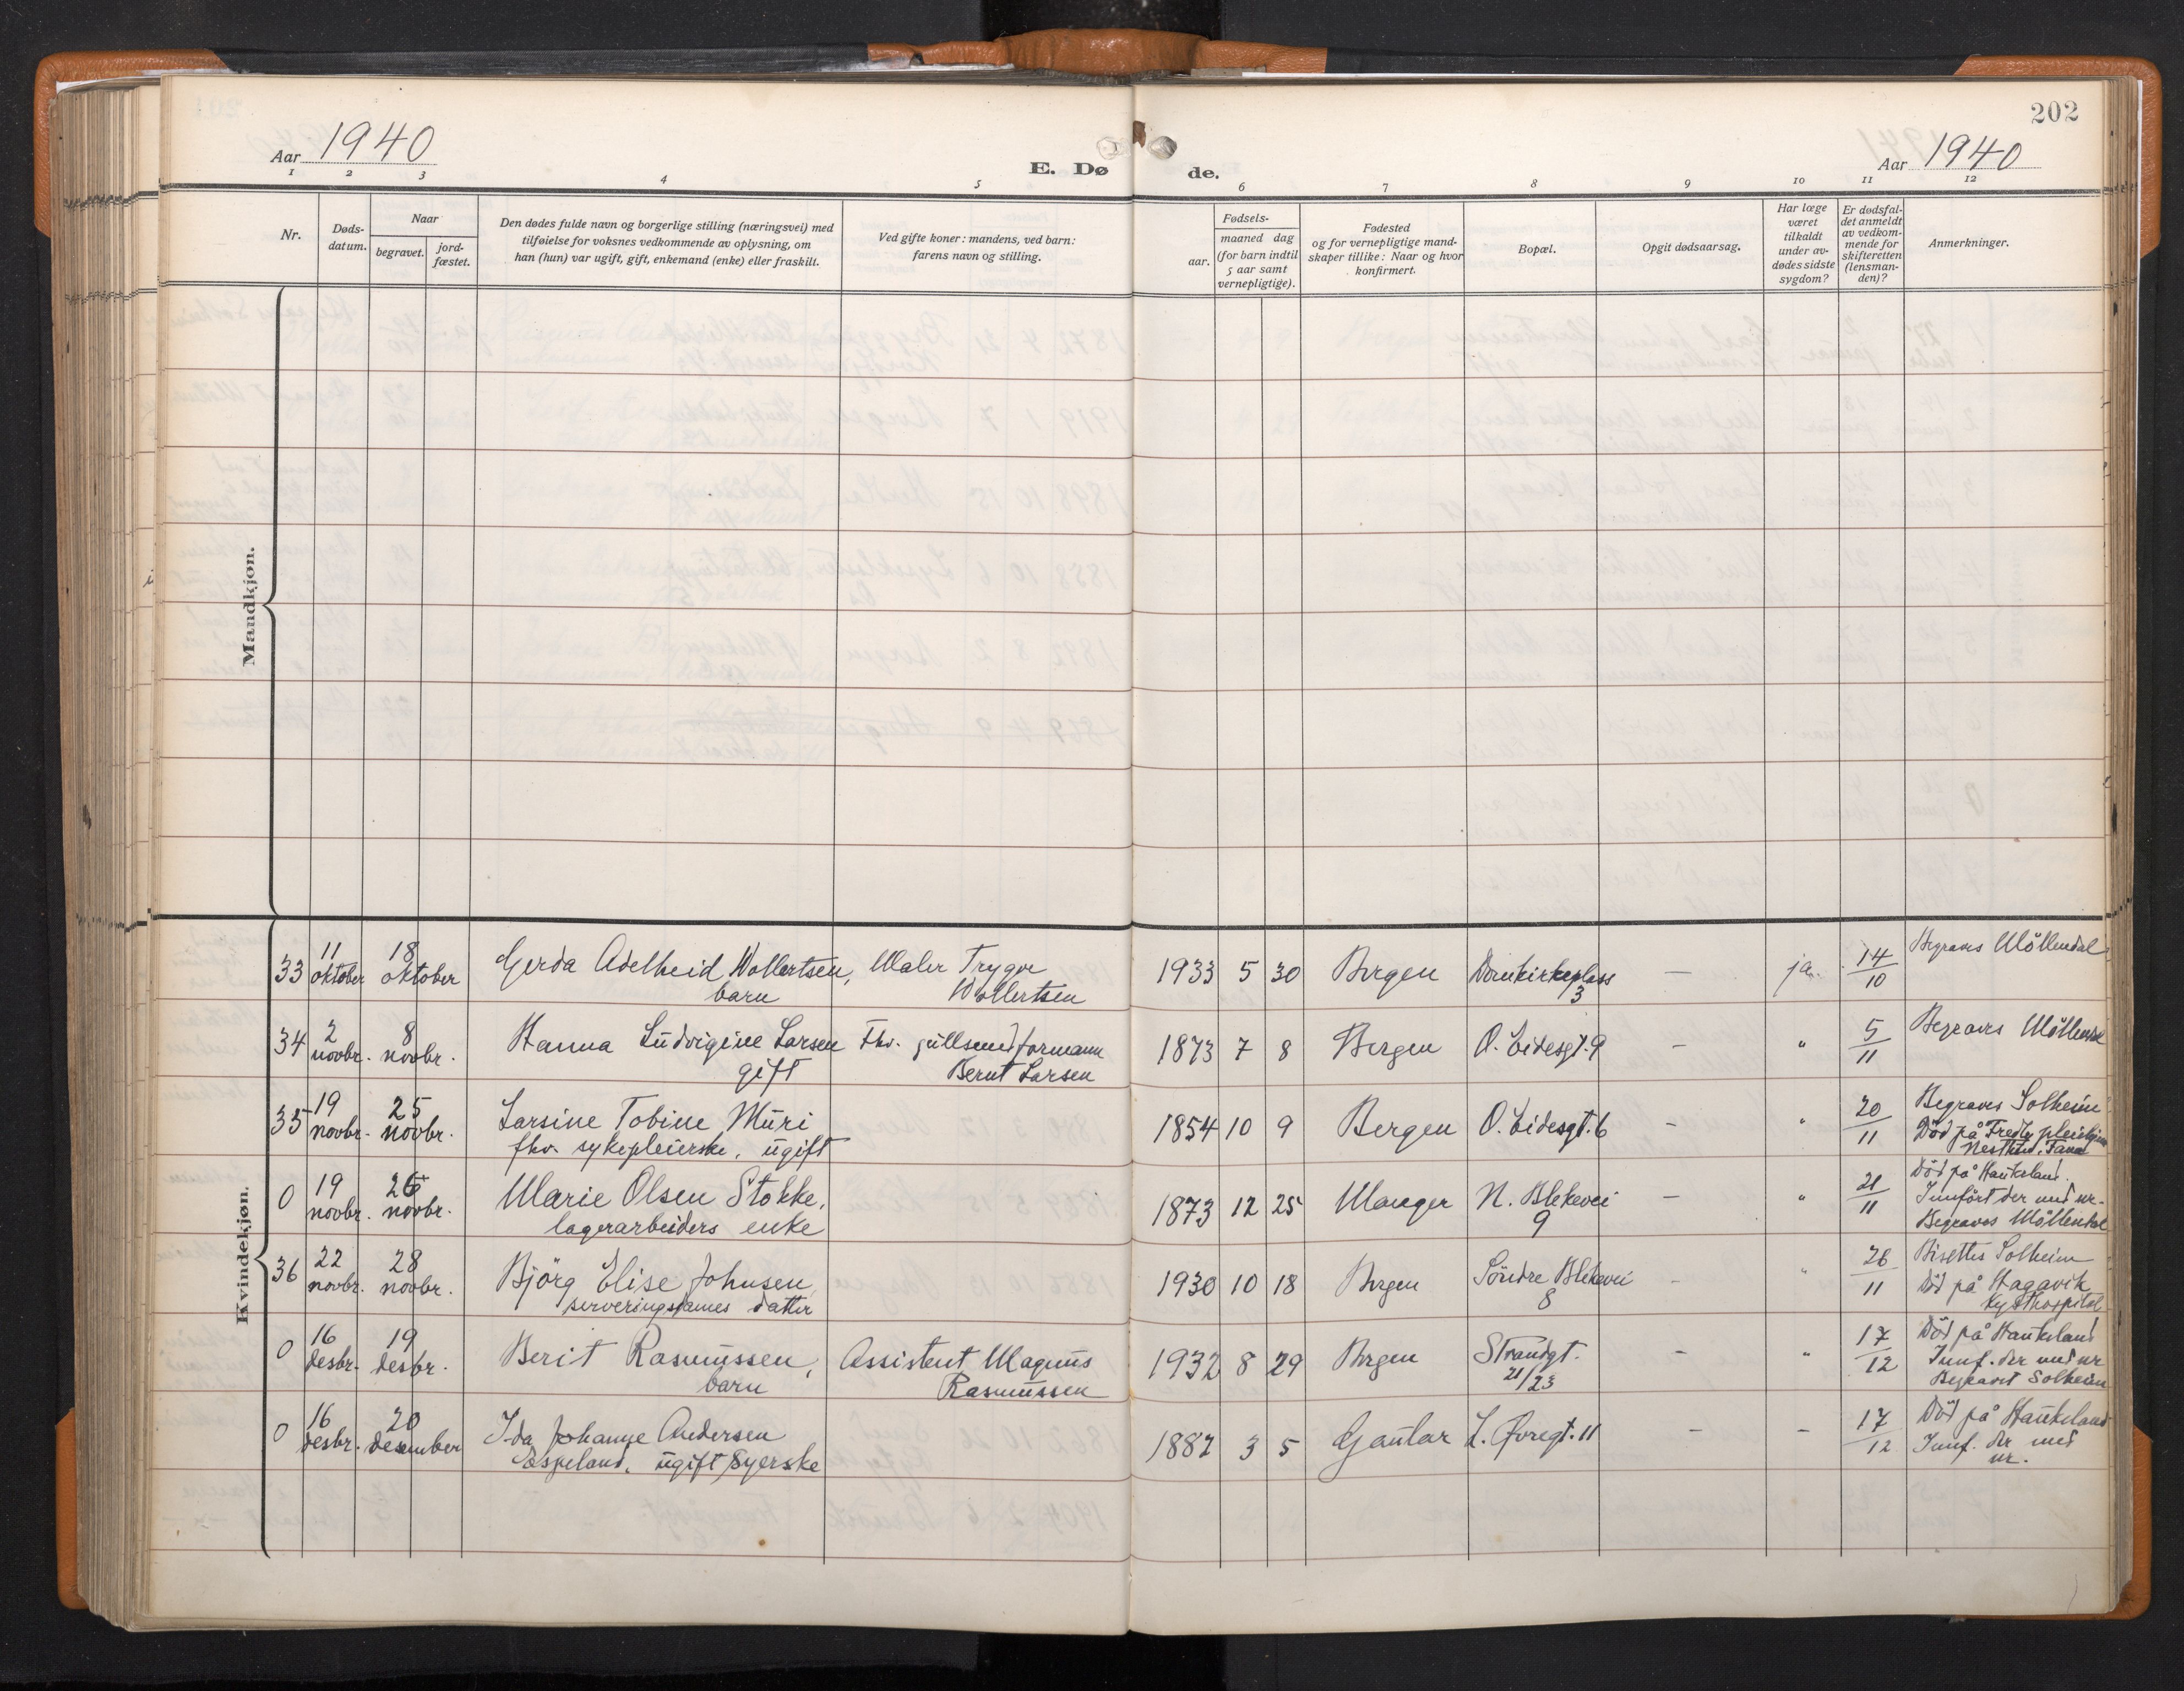 202
Aar 1940
E. Dø
de.
Aar 1940
1 2 3 4 5 6 7 8 9 10 11 12
Nr.
Døds-
datum.
Naar
begravet.
jord-
fæstet.
Den dødes fulde navn og borgerlige stilling (næringsvei) med
tilføielse for voksnes vedkommende av oplysning, om
han (hun) var ugift, gift, enkemand (enke) eller fraskilt.
Ved gifte koner: mandens, ved barn:
farens navn og stilling.
Fødsels-
aar.
maaned dag
(for barn indtil
5 aar samt
vernepligtige).
Fødested
og for vernepligtige mand-
skaper tillike: Naar og hvor
konfirmert.
Bopæl.
Opgit dødsaarsag.
Har læge
været
tilkaldt
under av-
dødes sidste
sygdom?
Er dødsfal-
det anmeldt
av vedkom-
mende for
skifteretten
(lensman-
den)?
Anmerkninger.
Mandkjøn.
Kvindekjøn.
33 11 oktober 18 oktober
Gerda Adelheid Wollertsen,
barn
Maler Trygve
Wollertsen
1933 5 30 Bergen Domkirkeplass
3
— ja. 14/10
Begraves Möllendal
34 2 novbr. 8 novbr.
Hanna Ludvigine Larsen
gift
Fhv. gullsmedformann
Bernt Larsen
1873 7 8 Bergen O. Eidesgt. 9 — " 5/11
Begraves Möllendal
35 19 novbr. 25 novbr.
Larsine Tobine Muri
fhv. sykepleierske, ugift
1854 10 9 Bergen O. Eidesgt. 6 — " 20/11
Begraves Solheim
Död på Fredly pleiehjem
Nesttun, Fana
0 19 novbr. 26 novbr.
Marie Olsen Stokke,
lagerarbeiders enke
1873 12 25 Manger N. Blekevei
9
— " 21/11
Död på Haukeland.
Innfört der med nr.
Begraves Möllendal
36 22 novbr. 28 novbr.
Björg Elise Johnsen,
serveringsdames datter
1930 10 18 Bergen Söndre Blekevei
8
— " 26/11
Bisettes Solheim
Död på Hagavik
Kysthospital
0 16 desbr. 19 desbr.
Berit Rasmussen,
barn
Assistent Magnus
Rasmussen
1932 8 29 Bergen Strandgt.
21/23
— " 17/12
Död på Haukeland
Innf. der med nr
Begravet Solheim
0 16 desbr. 20 desember
Ida Johanne Andersen
Espeland, ugift syerske
1882 3 5 Gaular L. Øvregt. 11 — — 17/12
Död på Haukeland
Innf. der med
nr.